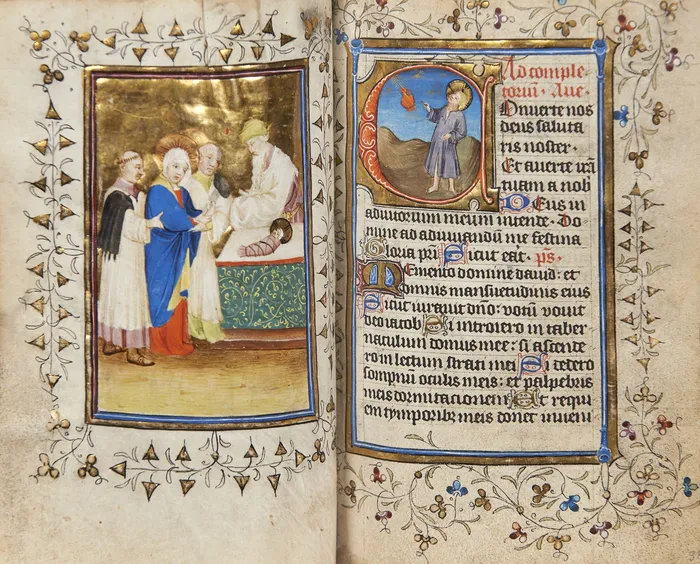 Ad comple
toriū · Aue
Conuerte nos
deus saluta
ris noster ·
Et auerte irā
tuam a nob
Deus in
adiutorium meum intende · Do
mine ad adiuuandū me festina
Gloria pr̄i Sicut eat · ps.
Memento domine dauid : et
omnis mansuetudinis eius
Sicut iurauit dn̄o : votū vouit
deo iacob Si introiero in taber
naculum domus mee : si ascende
ro in lectum strati mei Si dedero
sompnū oculis meis : et palpebris
meis dormitacionem Et requi
em tymporibꝫ meis donec inueni